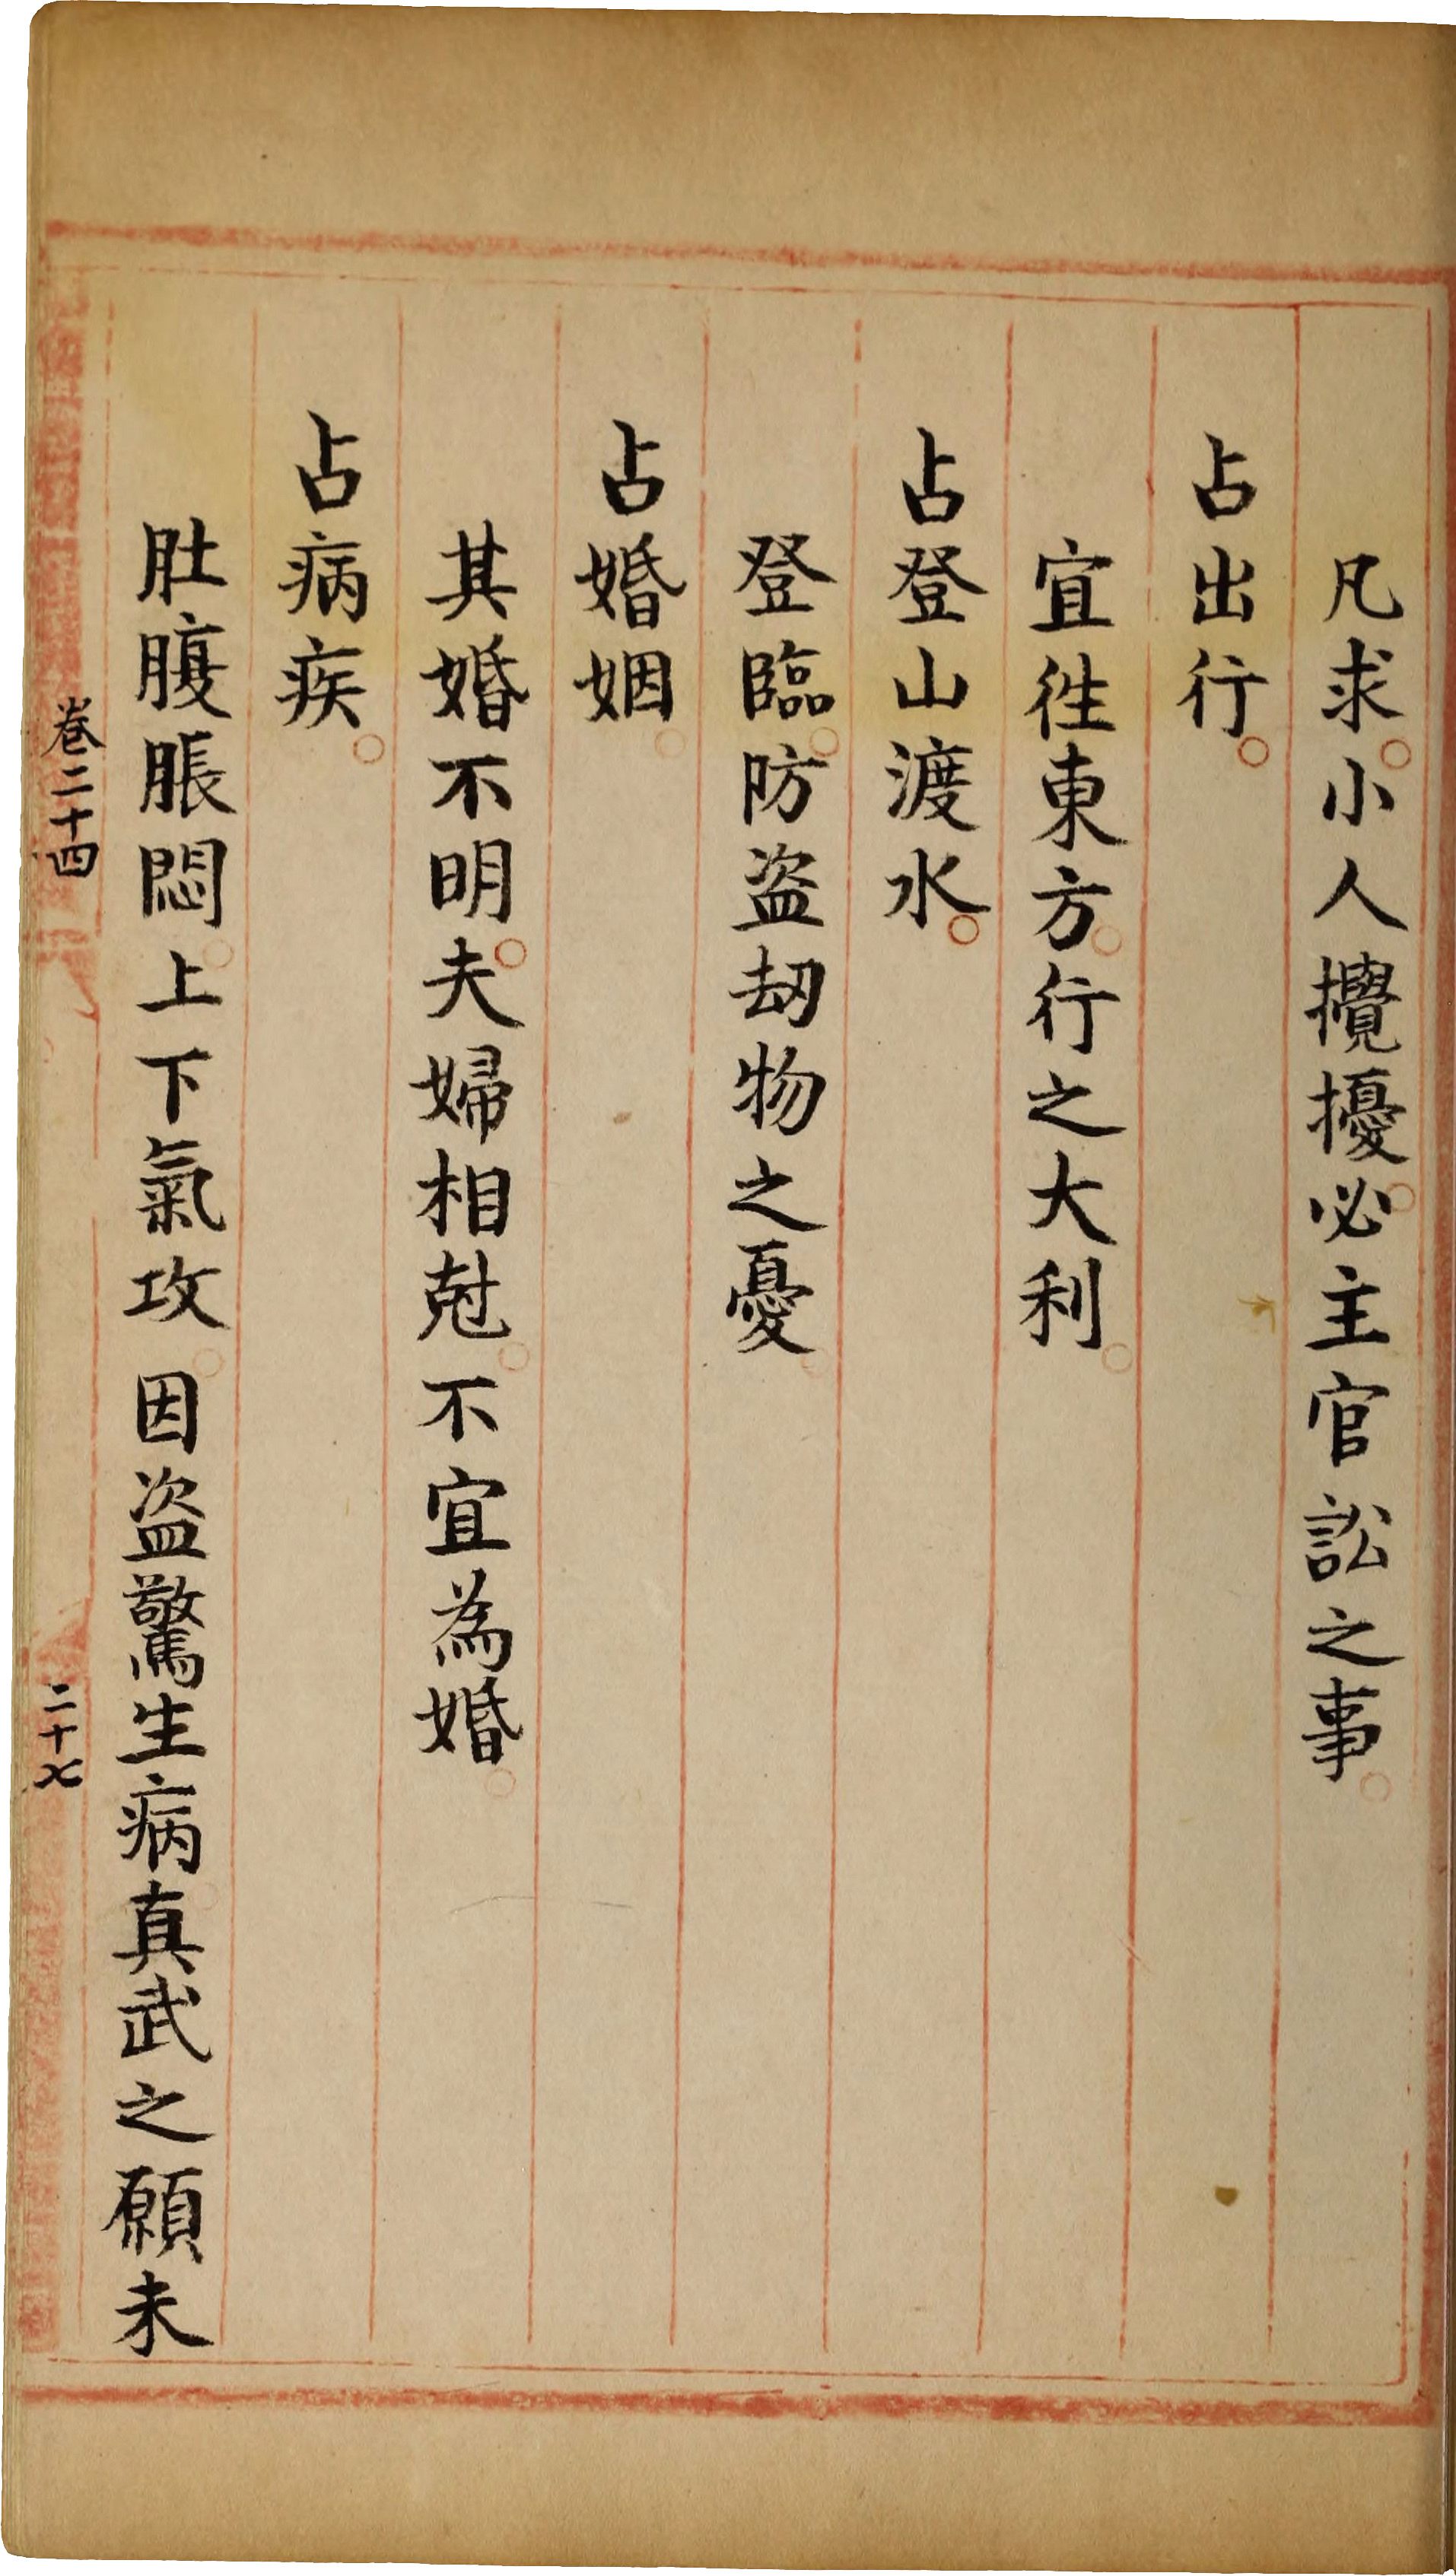 凡求。小人攪擾。必主官訟之事。
占出行。
宜徃東方。行之大利。
占登山渡水。
登臨。防盗刼物之憂。
占婚姻。
其婚不明。夫婦相尅。不宜為婚。
占病疾。
肚腹脹悶。上下氣攻。因盗驚生病。真武之願未
卷二十四
二十七